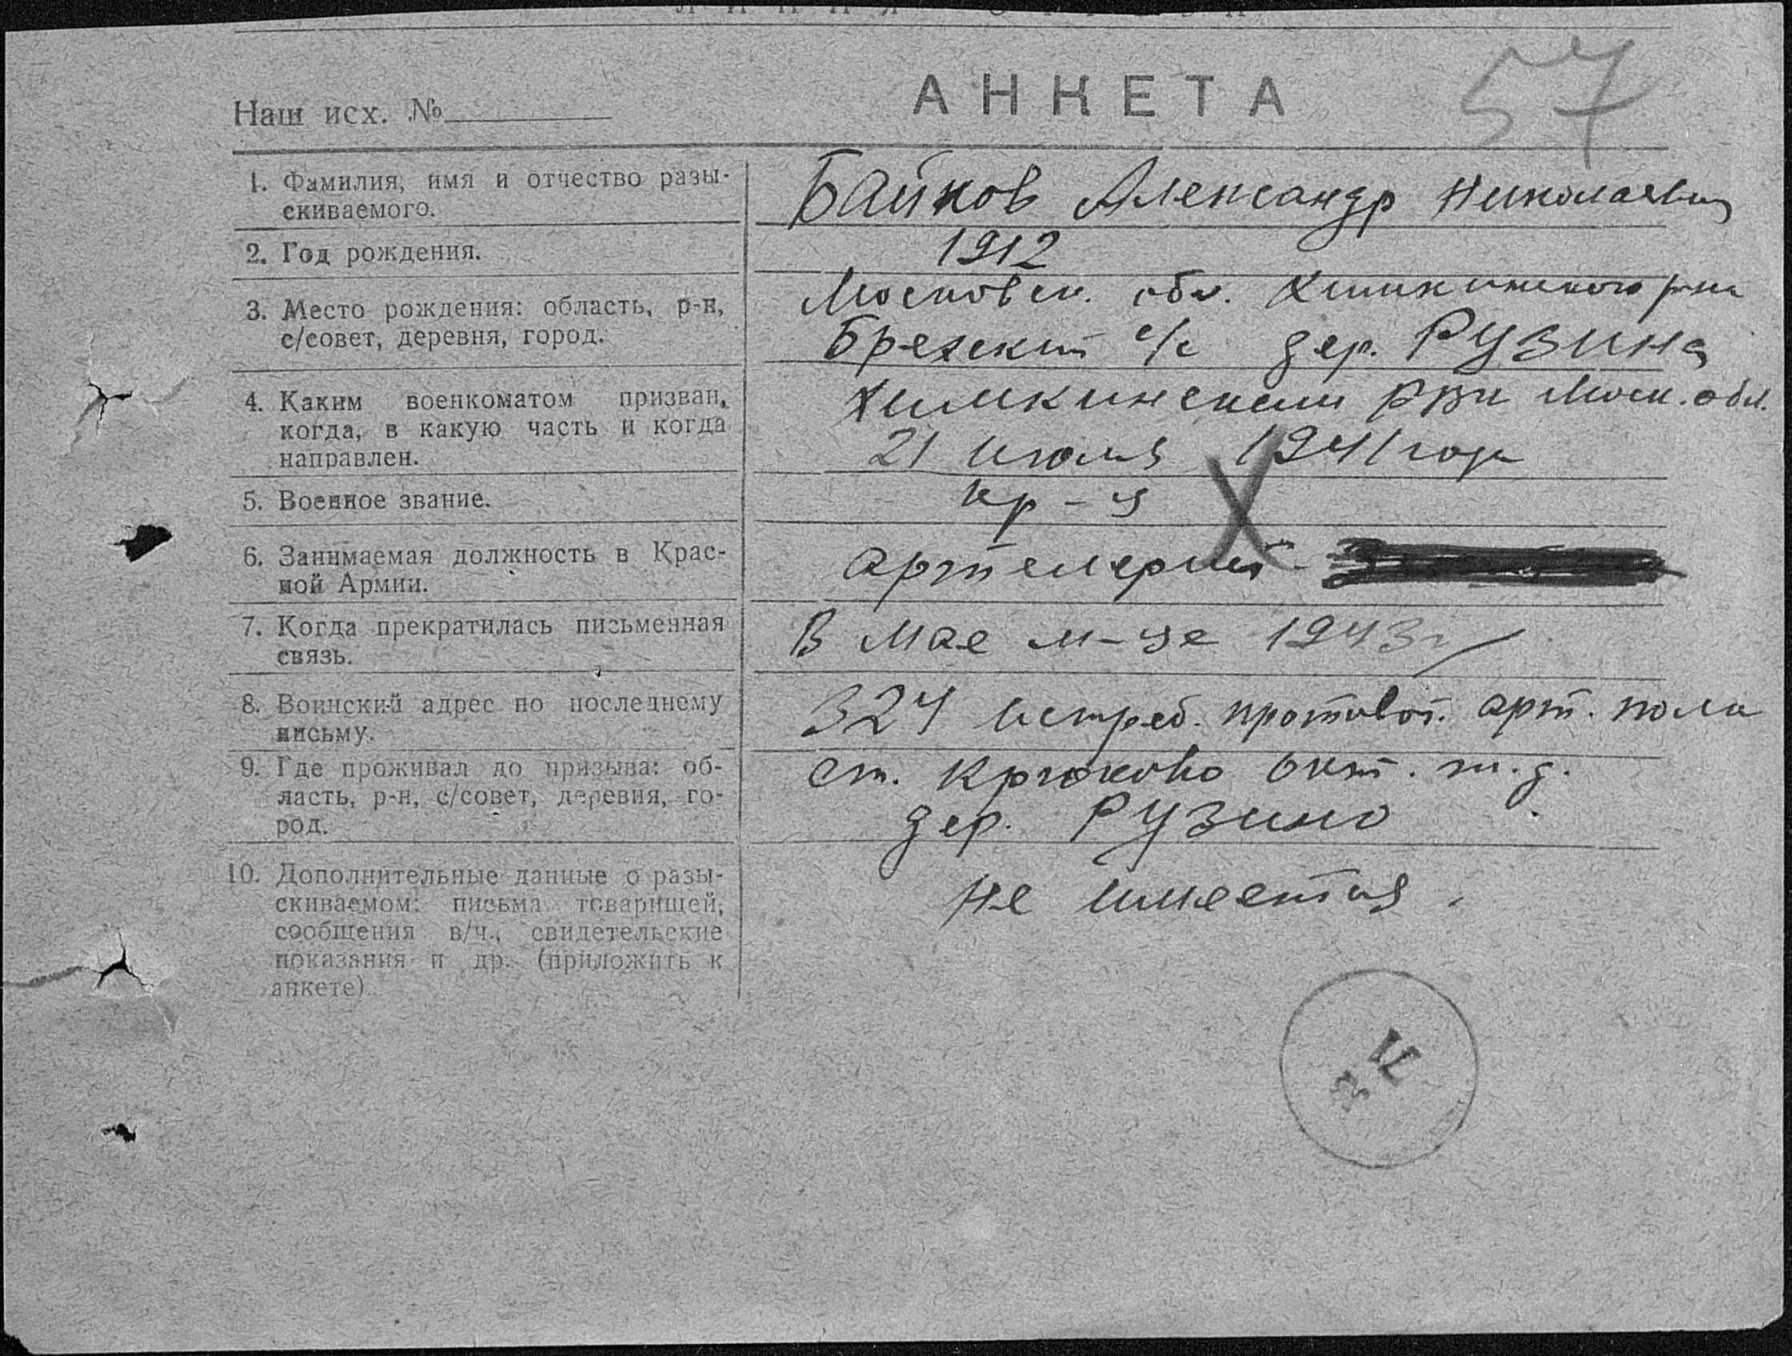 ЛИНИЯ ОТРЕЗА
Наш исх. №
АНКЕТА
57
1. Фамилия, имя и отчество разы-
скиваемого.
Байков Александр Николаевич
2. Год рождения.
1912
3. Место рождения: область, р-н,
с/совет, деревня, город.
Московск. обл. Химкинского р-на
с/с дер. Рузина
4. Каким военкоматом призван,
когда, в какую часть и когда
направлен.
Химкинским РВК Моск. обл.
21 июля 1941 года
5. Военное звание.
кр-ц
6. Занимаемая должность в Крас-
ной Армии.
7. Когда прекратилась письменная
связь.
В мае м-це 1943 г
8. Воинский адрес по последнему
письму.
324 истреб. противот. арт. полк
9. Где проживал до призыва: об-
ласть, р-н, с/совет, деревня, го-
род.
ст. Крюково Окт. ж.д.
дер. Рузино
10. Дополнительные данные о разы-
скиваемом: письма товарищей,
сообщения в/ч., свидетельские
показания и др. (приложить к
анкете).
не имеется.